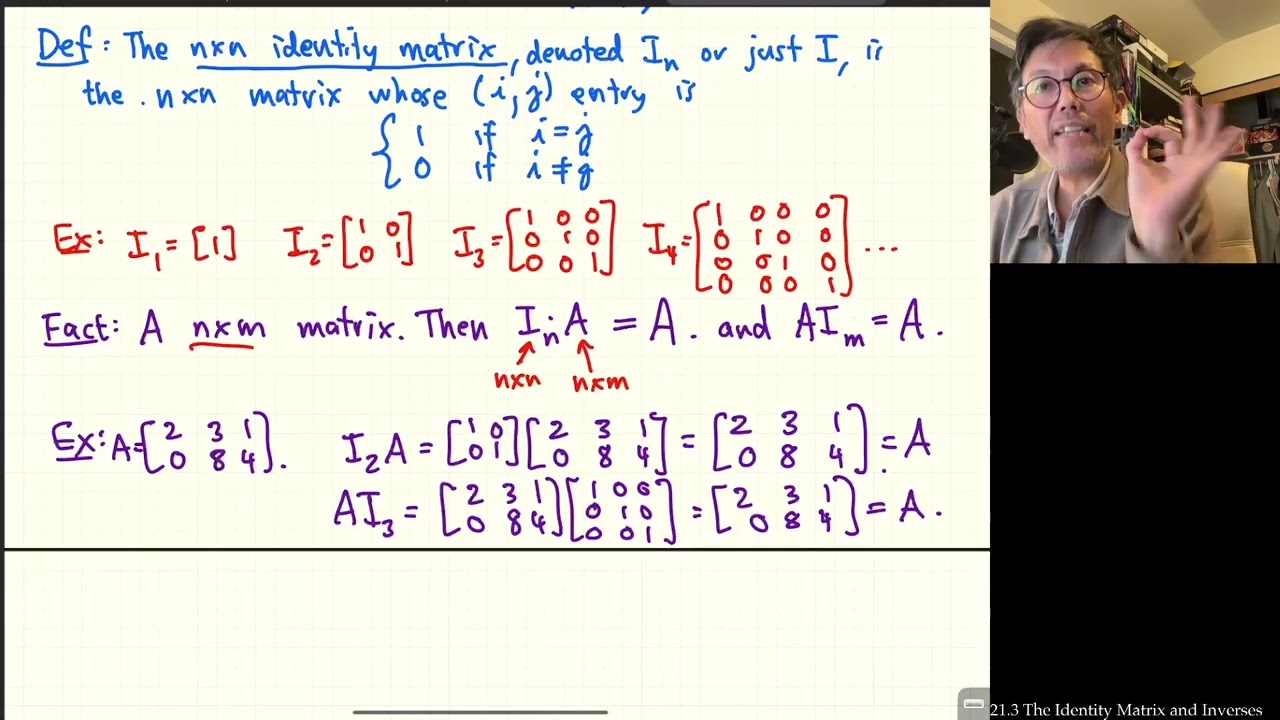 Def: The n×n identity matrix, denoted Iₙ or just I, is
the n×n matrix whose (i,j) entry is
{ 1 if i=j
0 if i≠j
Ex: I₁=[1] I₂=[1 0; 0 1] I₃=[1 0 0; 0 1 0; 0 0 1] I₄=[1 0 0 0; 0 1 0 0; 0 0 1 0; 0 0 0 1] ...
Fact: A n×m matrix. Then Iₙ·A = A. and AIₘ = A.
n×n n×m
Ex: A=[2 3 1; 0 8 4]. I₂A = [1 0; 0 1][2 3 1; 0 8 4] = [2 3 1; 0 8 4] = A
AI₃ = [2 3 1; 0 8 4][1 0 0; 0 1 0; 0 0 1] = [2 3 1; 0 8 4] = A.
21.3 The Identity Matrix and Inverses